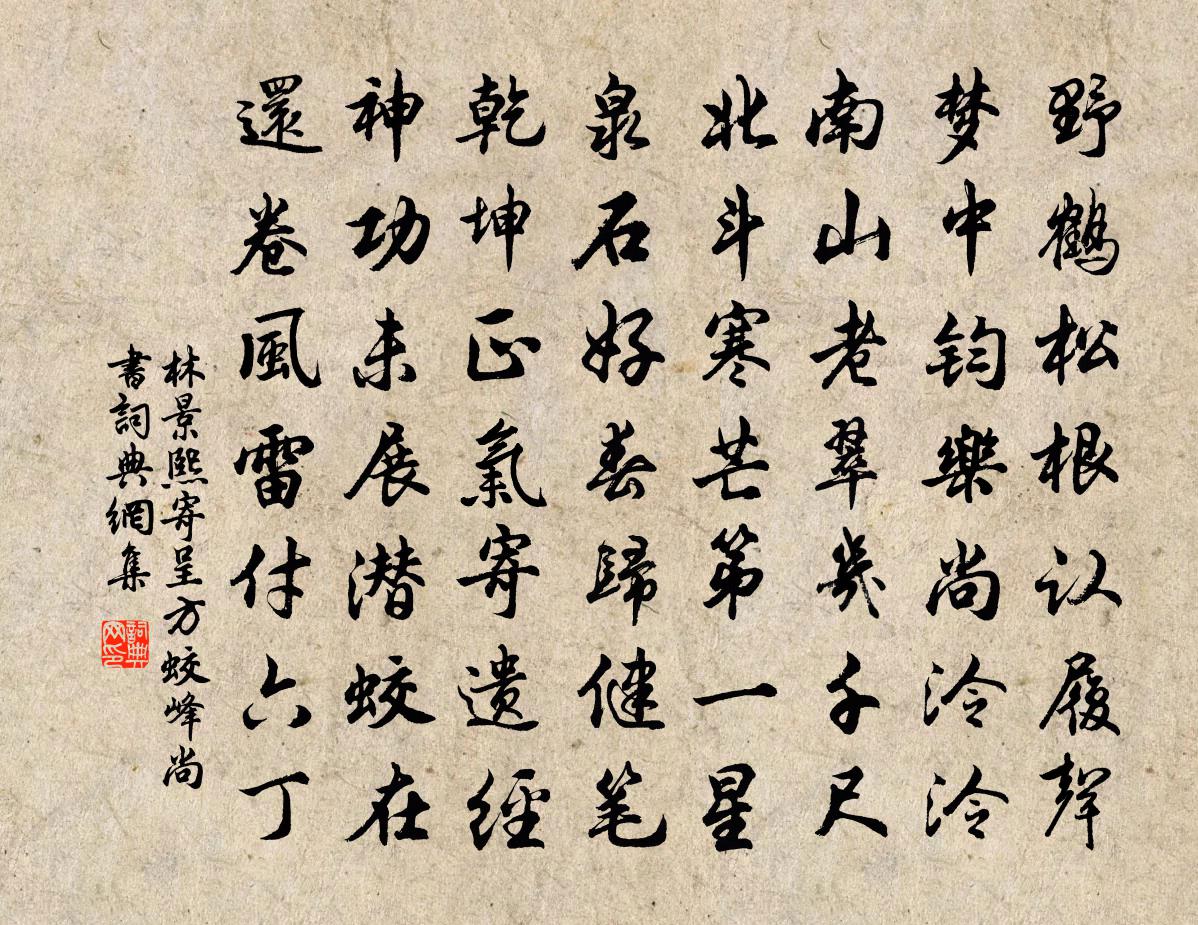 野鹤松根认履聲
梦中鈞樂尚泠泠
南山老翠幾千尺
北斗寒芒第一星
泉石好春歸健笔
乾坤正氣寄遗經
神功未展潜蛟在
還卷風雷付六丁
林景熙寄呈方蛟峰尚
書詞典網集
詞典
网印